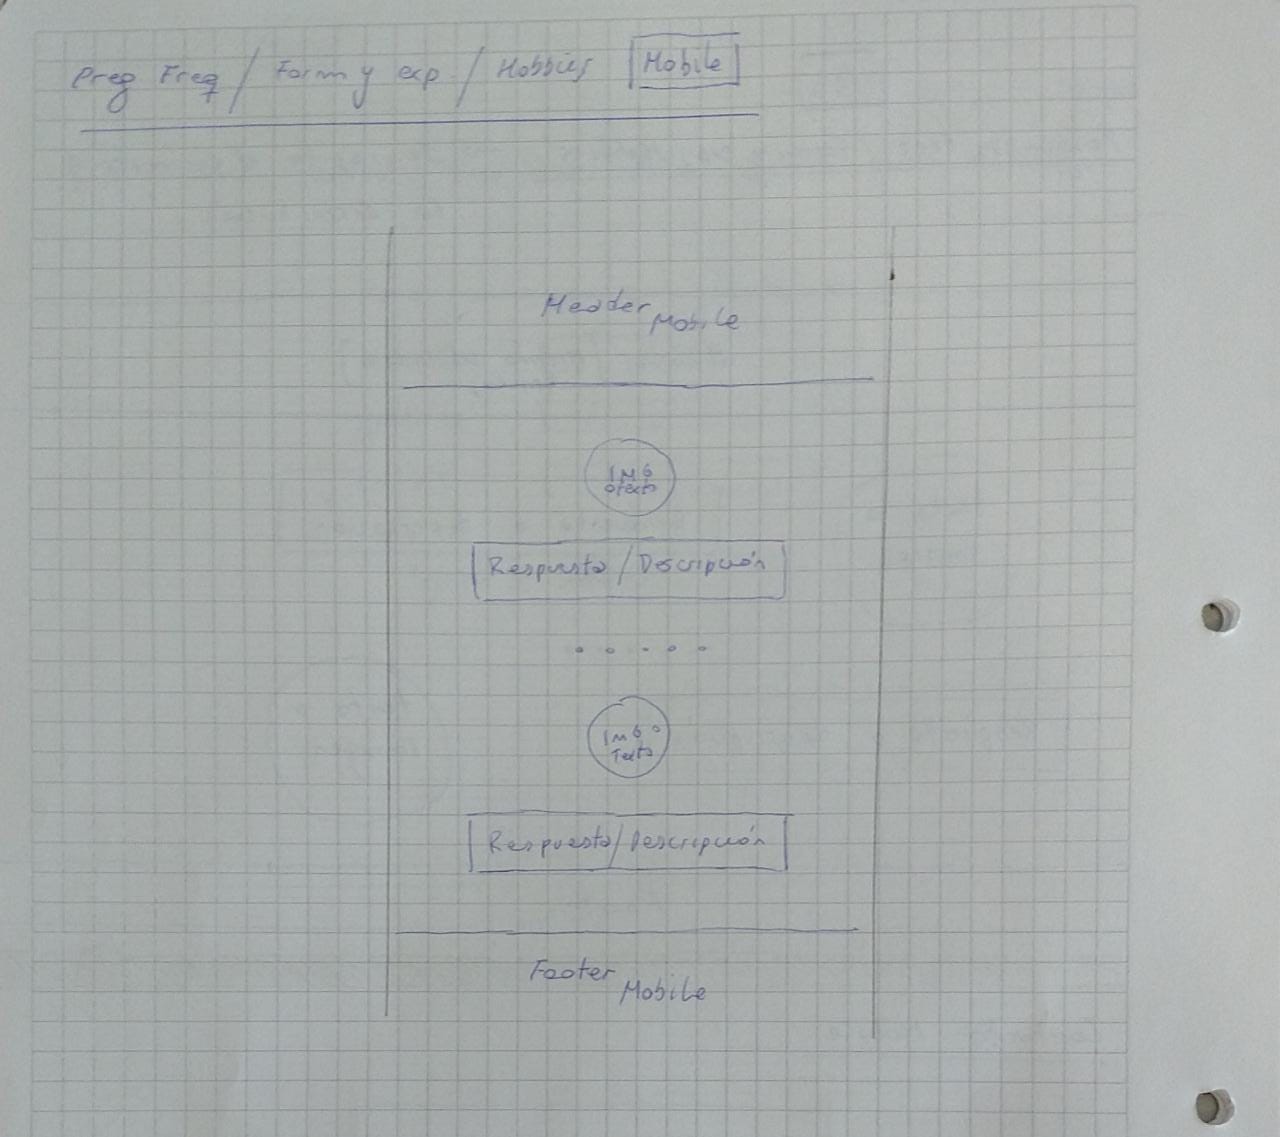 Preg Freq / Form y exp / Hobbies Mobile
Header Mobile
IMG
o texto
Respuesta / Descripción
.....
IMG o
Texto
Respuesta/Descripción
Footer Mobile